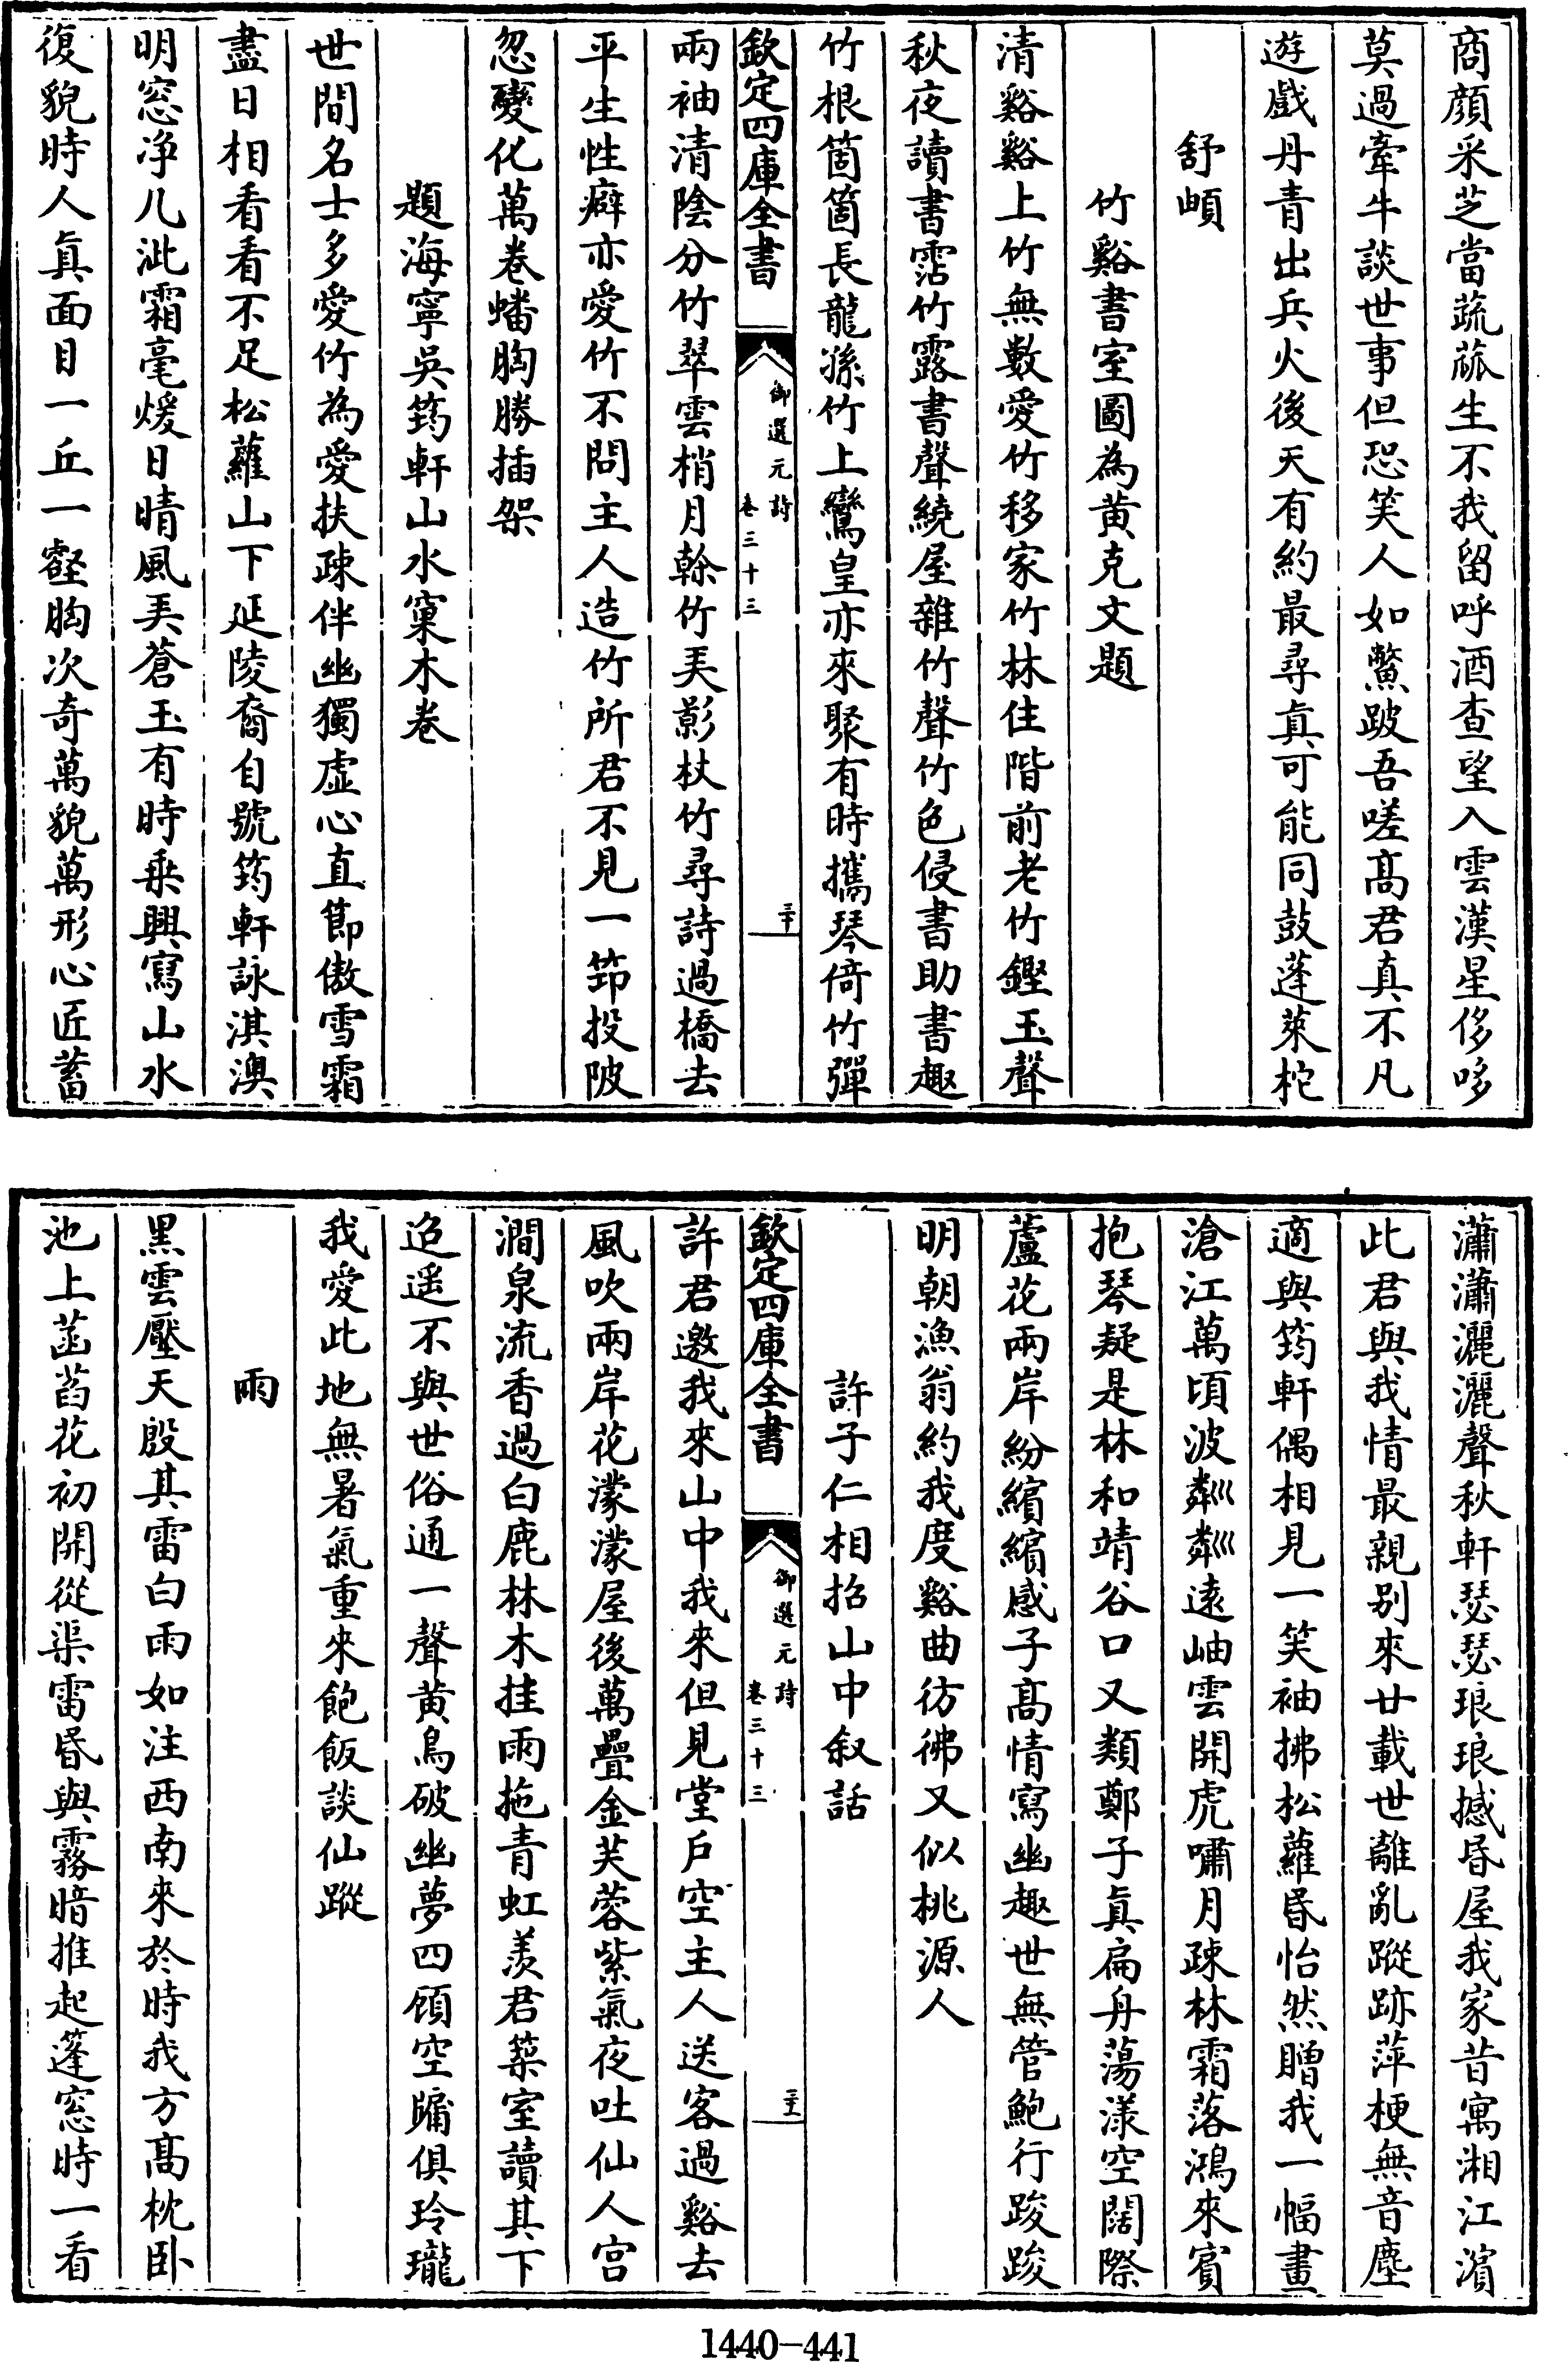 商顏采芝當蔬苽生不我留呼酒查望入雲漢星侈哆
莫過牽牛談世事但恐笑人如鱉跛吾嗟髙君真不凡
遊戲丹青出兵火後天有約最尋真可能同鼓蓬萊柁
舒頔
竹谿書室圖為黄克文題
清谿谿上竹無數愛竹移家竹林住階前老竹鏗玉聲
秋夜讀書霑竹露書聲繞屋雜竹聲竹色侵書助書趣
竹根箇箇長龍孫竹上鸞皇亦來聚有時攜琴倚竹彈
欽定四庫全書
御選元詩
卷三十三
三十
兩袖清陰分竹翠雲梢月榦竹美影杖竹尋詩過橋去
平生性癖亦愛竹不問主人造竹所君不見一笻投陂
忽變化萬卷蟠胸勝插架
題海寧吳筠軒山水窠木卷
世間名士多愛竹為愛扶疎伴幽獨虛心直節傲雪霜
盡日相看看不足松蘿山下延陵裔自號筠軒詠淇澳
明窓净几泚霜毫煖日晴風弄蒼玉有時乗興寫山水
復貌時人眞面目一丘一壑胸次奇萬貌萬形心匠蓄
瀟瀟灑灑聲秋軒瑟瑟琅琅撼昏屋我家昔寓湘江濵
此君與我情最親别來廿載世離亂蹤跡萍梗無音塵
適與筠軒偶相見一笑袖拂松蘿昏怡然贈我一幅畫
滄江萬頃波粼粼遠岫雲開虎嘯月疎林霜落鴻來賓
抱琴疑是林和靖谷口又類鄭子眞扁舟蕩漾空闊際
蘆花兩岸紛繽繽感子髙情寫幽趣世無管鮑行踆踆
明朝漁翁約我度谿曲彷彿又似桃源人
許子仁相招山中叙話
欽定四庫全書
御選元詩
卷三十三
三十一
許君邀我來山中我來但見堂戶空主人送客過谿去
風吹兩岸花濛濛屋後萬疊金芙蓉紫氣夜吐仙人宫
澗泉流香過白鹿林木挂雨拖青虹羡君築室讀其下
迢遥不與世俗通一聲黄鳥破幽夢四顧空牗俱玲瓏
我愛此地無暑氣重來飽飯談仙蹤
雨
黑雲壓天殷其雷白雨如注西南來於時我方髙枕卧
池上菡萏花初開從渠雷昏與霧暗推起篷窓時一看
1440-441